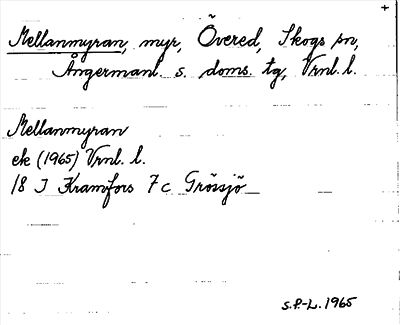 +
Mellanmyran, myr, Övered, Skogs sn,
Ångermanl. s. doms. tg, Vrnl. l.
Mellanmyran
ek (1965) Vrnl. l.
18 J Kramfors 7 c Grössjö
S.P.-L. 1965